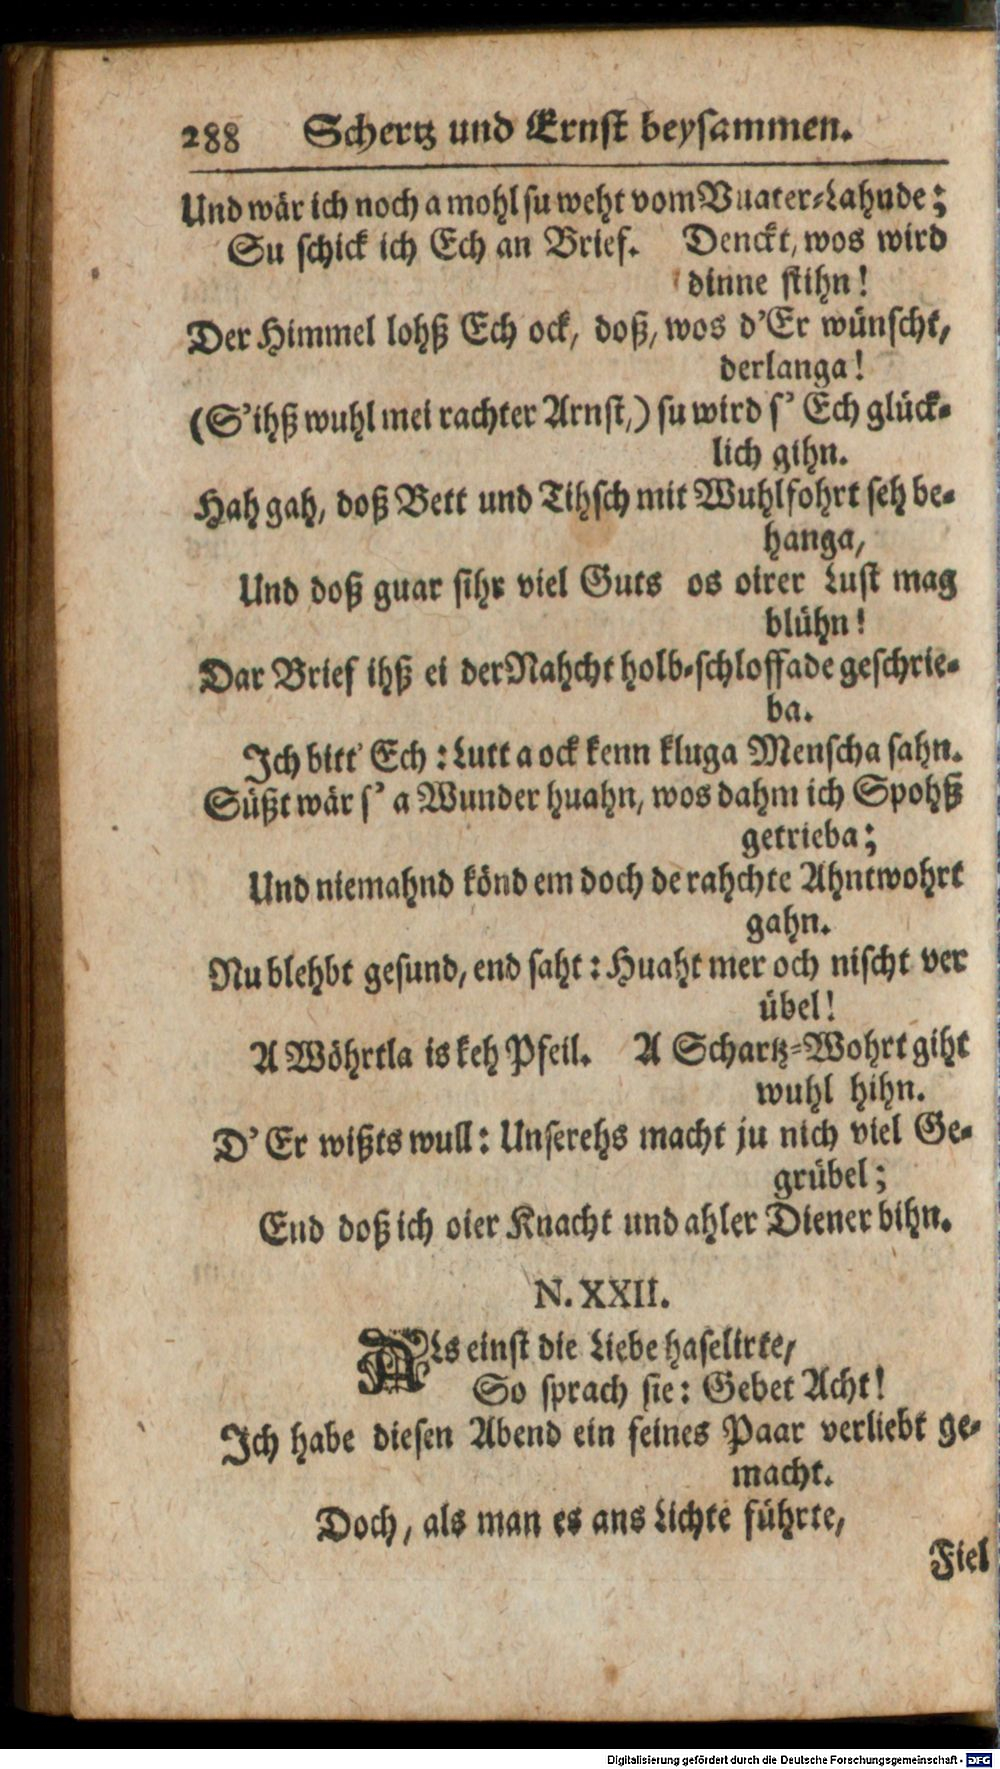 288 Schertz und Ernst beysammen.
Und wär ich noch a mohl su weht vom Vuater-Lahnde;
Su schick ich Ech an Brief. Denckt, wos wird
dinne stihn!
Der Himmel lohß Ech ock, doß, wos d'Er wünscht,
derlanga!
(S'ihß wuhl mei rachter Arnst,) su wird s' Ech glück-
lich gihn.
Hah gah, doß Bett und Tihsch mit Wuhlfohrt seh be-
hanga,
Und doß guar sihr viel Guts os oirer Lust mag
blühn!
Dar Brief ihß ei der Nahcht holb-schloffade geschrie-
ba.
Ich bitt' Ech: Lutt a ock kenn kluga Menscha sahn.
Süßt wär s' a Wunder huahn, wos dahm ich Spohß
getrieba;
Und niemahnd könd em doch de rahchte Ahntwohrt
gahn.
Nu blehbt gesund, end saht: Huaht mer och nischt ver
übel!
A Wöhrtla is keh Pfeil. A Schartz-Wohrt giht
wuhl hihn.
D' Er wißts wull: Unserehs macht ju nich viel Ge-
grübel;
End doß ich oier Knacht und ahler Diener bihn.
N. XXII.
ALs einst die Liebe haselirte,
So sprach sie: Gebet Acht!
Ich habe diesen Abend ein feines Paar verliebt ge-
macht.
Doch, als man es ans Lichte führte,
Fiel
Digitalisierung gefördert durch die Deutsche Forschungsgemeinschaft - DFG